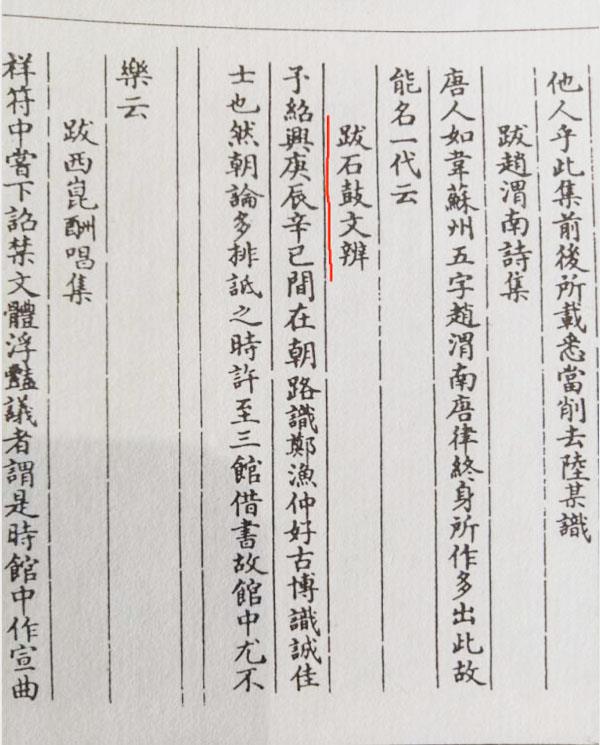 他人乎此集前後所載悉當削去陸某識
跋趙渭南詩集
唐人如韋蘇州五字趙渭南唐律終身所作多出此故
能名一代云
跋石鼓文辨
予紹興庚辰辛已間在朝路識鄭漁仲好古博識誠佳
士也然朝論多排詆之時許至三館借書故館中尤不
樂云
跋西崑酬唱集
祥符中嘗下詔禁文體浮豔議者謂是時館中作宣曲